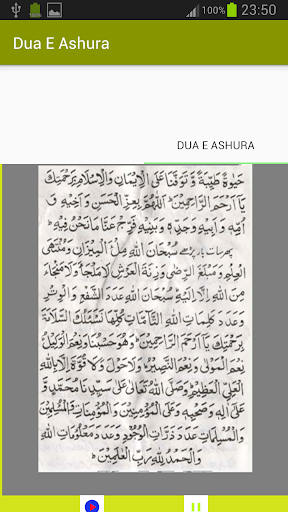 100% 23:50
Dua E Ashura
DUA E ASHURA
حَيٰوةً طَيِّبَةً وَّ تَوَفَّنَا عَلَى الْاِيْمَانِ وَالْاِسْلَامِ بِرَحْمَتِكَ
يَا اَرْحَمَ الرَّاحِمِيْنَ اَللّٰهُمَّ بِعِزِّ الْحَسَنِ وَ اَخِيْهِ وَ
اُمِّهٖ وَ اَبِيْهِ وَ جَدِّهٖ وَ بَنِيْهِ فَرِّجْ عَمَّا نَحْنُ فِيْهِ
پھر سات بار پڑھے سُبْحَانَ اللهِ مِلْءَ الْمِيْزَانِ وَمُنْتَهَى
الْعِلْمِ وَ مَبْلَغَ الرِّضٰى وَ زِنَةَ الْعَرْشِ لَا مَلْجَأَ وَ لَا مَنْجَأَ
مِنَ اللهِ اِلَّا اِلَيْهِ سُبْحَانَ اللهِ عَدَدَ الشَّفْعِ وَ الْوِتْرِ
وَ عَدَدَ كَلِمَاتِ اللهِ التَّامَّاتِ كُلِّهَا نَسْئَلُكَ السَّلَامَةَ
بِرَحْمَتِكَ يَا اَرْحَمَ الرَّاحِمِيْنَ وَهُوَ حَسْبُنَا وَ نِعْمَ الْوَكِيْلُ
نِعْمَ الْمَوْلٰى وَ نِعْمَ النَّصِيْرُ وَ لَا حَوْلَ وَ لَا قُوَّةَ اِلَّا بِاللهِ
الْعَلِيِّ الْعَظِيْمِ وَ صَلَّى اللهُ تَعَالٰى عَلٰى سَيِّدِنَا مُحَمَّدٍ وَّ
عَلٰى اٰلِهٖ وَ صَحْبِهٖ وَ عَلَى الْمُؤْمِنِيْنَ وَ الْمُؤْمِنَاتِ وَ الْمُسْلِمِيْنَ
وَ الْمُسْلِمَاتِ عَدَدَ ذَرَّاتِ الْوُجُوْدِ وَ عَدَدَ مَعْلُوْمَاتِ اللهِ
وَ الْحَمْدُ لِلّٰهِ رَبِّ الْعٰلَمِيْنَ